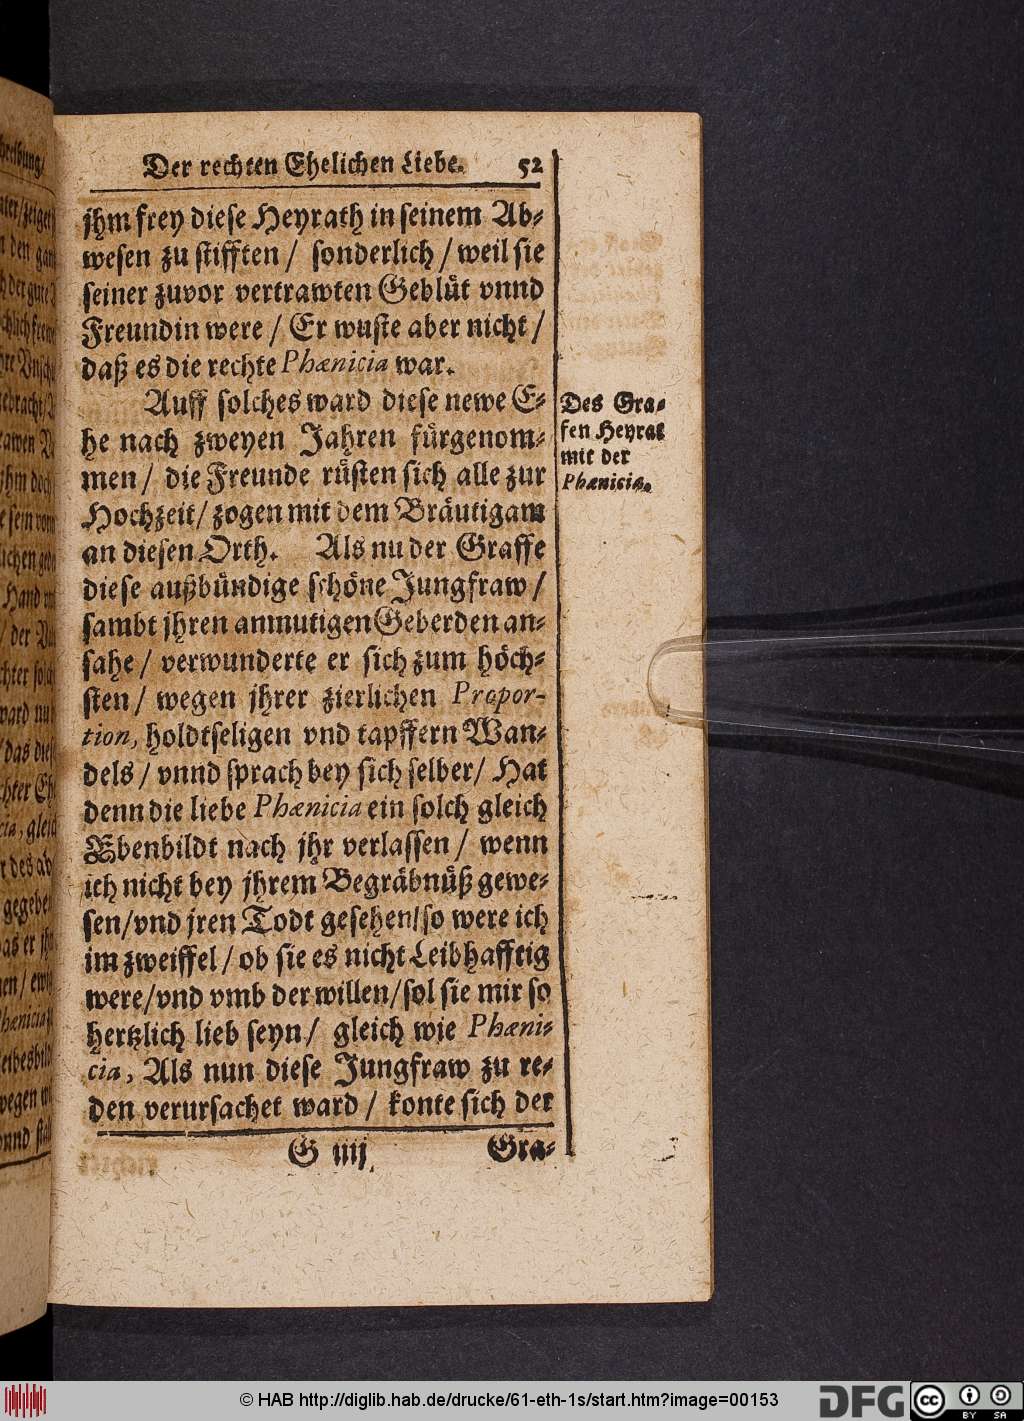 Der rechten Ehelichen Liebe. 52
jhm frey diese Heyrath in seinem Ab-
wesen zu stifften / sonderlich / weil sie
seiner zuvor vertrawten Geblüt vnnd
Freundin were / Er wuste aber nicht /
daß es die rechte Phænicia war.
Auff solches ward diese newe E-
he nach zweyen Jahren fürgenom-
men / die Freunde rüsten sich alle zur
Hochzeit / zogen mit dem Bräutigam
an diesen Orth. Als nu der Graffe
diese außbündige schöne Jungfraw /
sambt jhren anmutigen Geberden an-
sahe / verwunderte er sich zum höch-
sten / wegen jhrer zierlichen Propor-
tion, holdtseligen vnd tapffern Wan-
dels / vnnd sprach bey sich selber / Hat
denn die liebe Phænicia ein solch gleich
Ebenbildt nach jhr verlassen / wenn
ich nicht bey jhrem Begräbnüß gewe-
sen / vnd jren Todt gesehen / so were ich
im zweiffel / ob sie es nicht Leibhafftig
were / vnd vmb der willen / sol sie mir so
hertzlich lieb seyn / gleich wie Phæni-
cia, Als nun diese Jungfraw zu re-
den verursachet ward / konte sich der
G iiij Gra-
Des Gra-
fen Heyrat
mit der
Phænicia.
© HAB http://diglib.hab.de/drucke/61-eth-1s/start.htm?image=00153
DFG
cc
BY SA